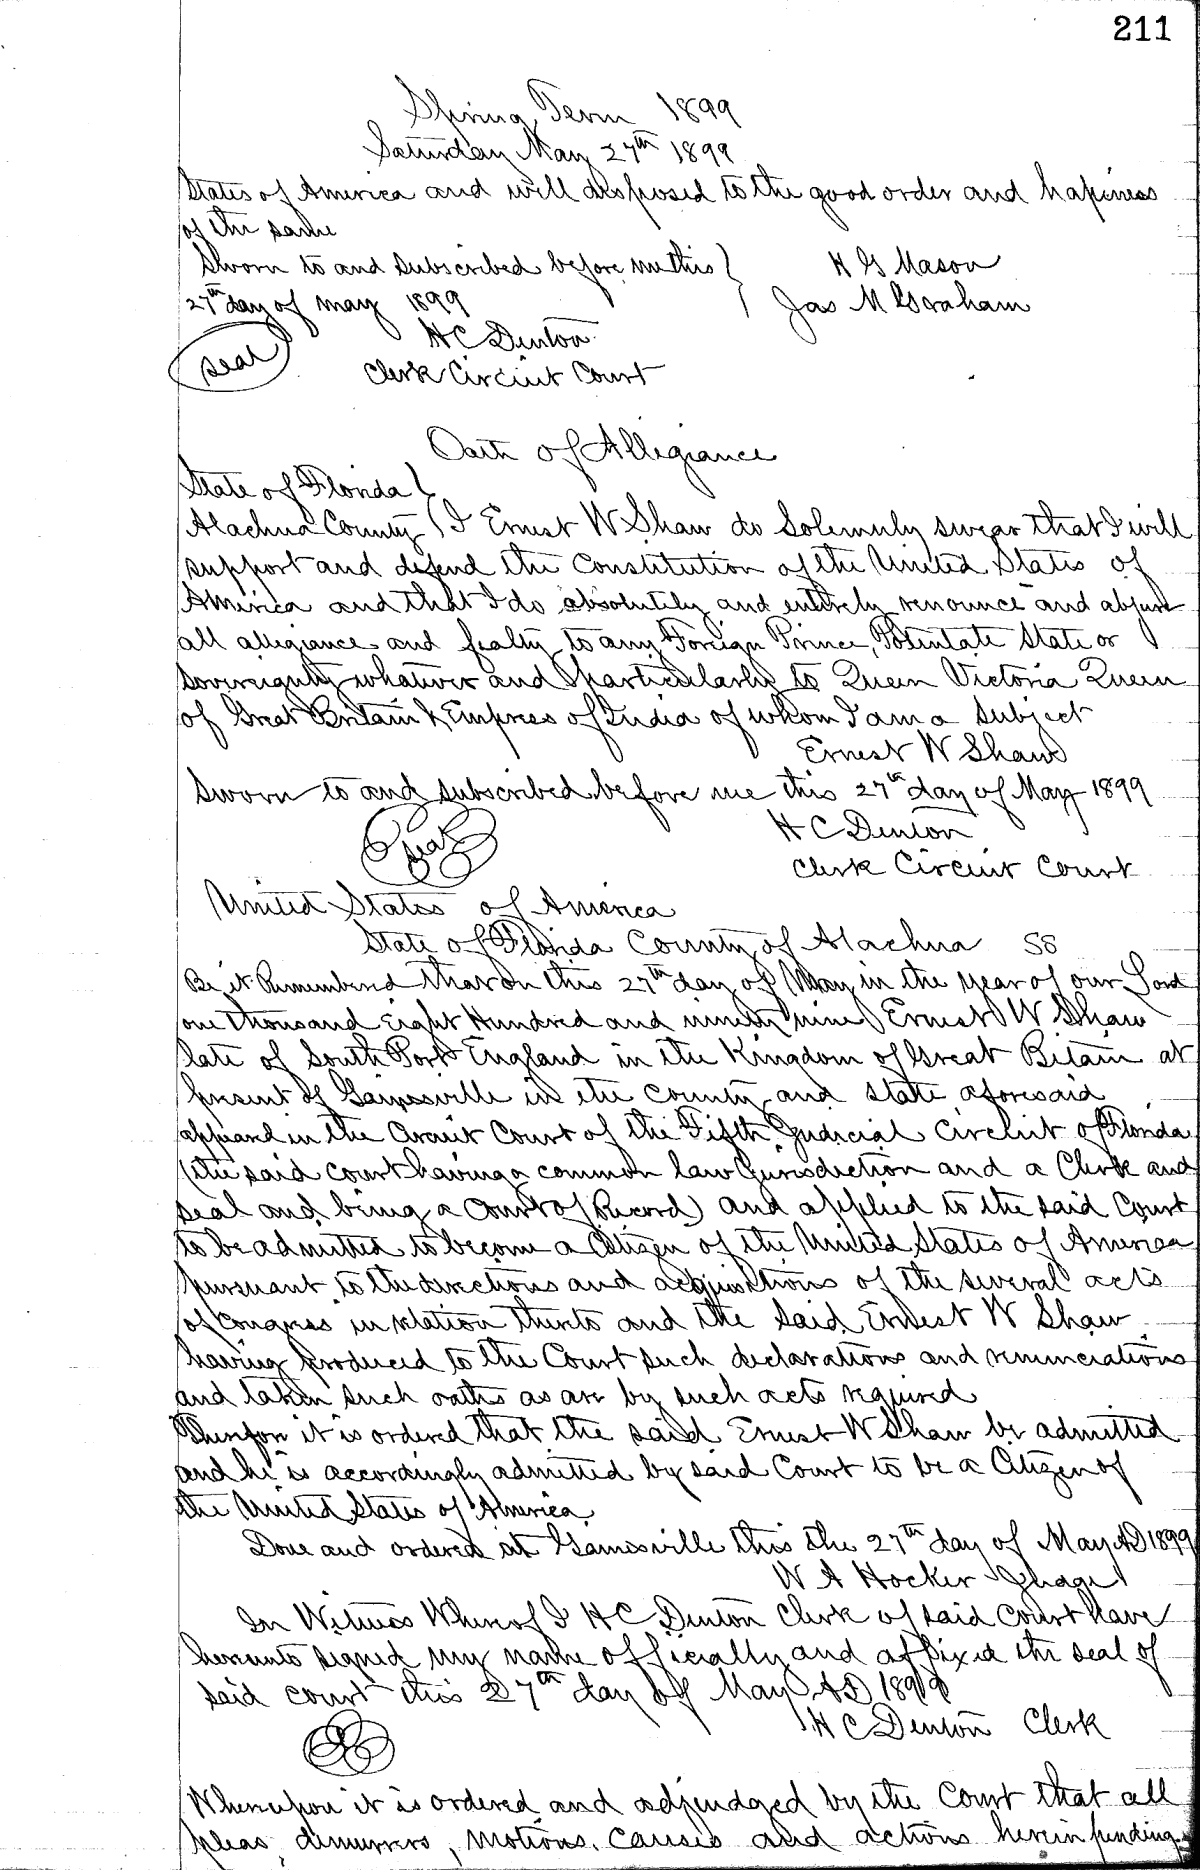 211
Spring Term 1899
Saturday May 27th 1899
States of America and will disposed to the good order and hapiness
of the same
Sworn to and subscribed before me this } H G Mason
27th day of May 1899 Jas M Graham
H C Denton
seal Clerk Circuit Court
Oath of Allegiance
State of Florida }
Alachua County } I Ernest W Shaw do Solemnly swear that I will
support and defend the Constitution of the United States of
America and that I do absolutely and entirely renounce and abjure
all allegiance and fealty to any Foreign Prince, Potentate State or
Sovereignty whatever and particularly to Queen Victoria Queen
of Great Britain & Empress of India of whom I am a subject
Ernest W Shaw
Sworn to and subscribed before me this 27th day of May 1899
Seal H C Denton
Clerk Circuit Court
United States of America
State of Florida County of Alachua SS
Be it Remembered that on this 27th day of May in the year of our Lord
one thousand Eight Hundred and ninety nine Ernest W Shaw
late of South Port England in the Kingdom of Great Bitain at
present of Gainesville in the County and State aforesaid
appeard in the Circuit Court of the Fifth Judicial Circuit of Florida
(the said court having a common law Jurisdiction and a Clerk and
seal and being a Court of Record) and applied to the said Court
to be admitted to become a Citizen of the United States of America
pursuant to the directions and acquisitions of the several acts
of Congress in relation thereto and the said Ernest W Shaw
having produced to the Court such declarations and renunciations
and taken such oaths as are by such acts required
Therefore it is ordered that the said Ernest W Shaw be admitted
and he is accordingly admitted by said Court to be a Citizen of
the United States of America
Done and ordered at Gainesville this the 27th day of May AD 1899
W A Hocker Judge
In Witness Whereof I H C Denton Clerk of said Court have
hereunto signed my name officially and affixed the seal of
said court this 27th day of May AD 1899
H C Denton Clerk
Whereupon it is ordered and adjudged by the Court that all
pleas, demurrers, motions, causes and actions herein pending